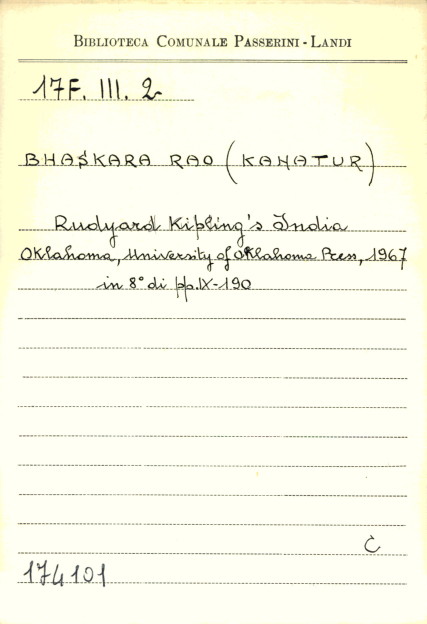 BIBLIOTECA COMUNALE PASSERINI - LANDI
17F. III. 2
BHASKARA RAO (KANATUR)
Rudyard Kipling's India
Oklahoma, University of Oklahoma Press, 1967
in 8° di pp. IX-190
C
174101